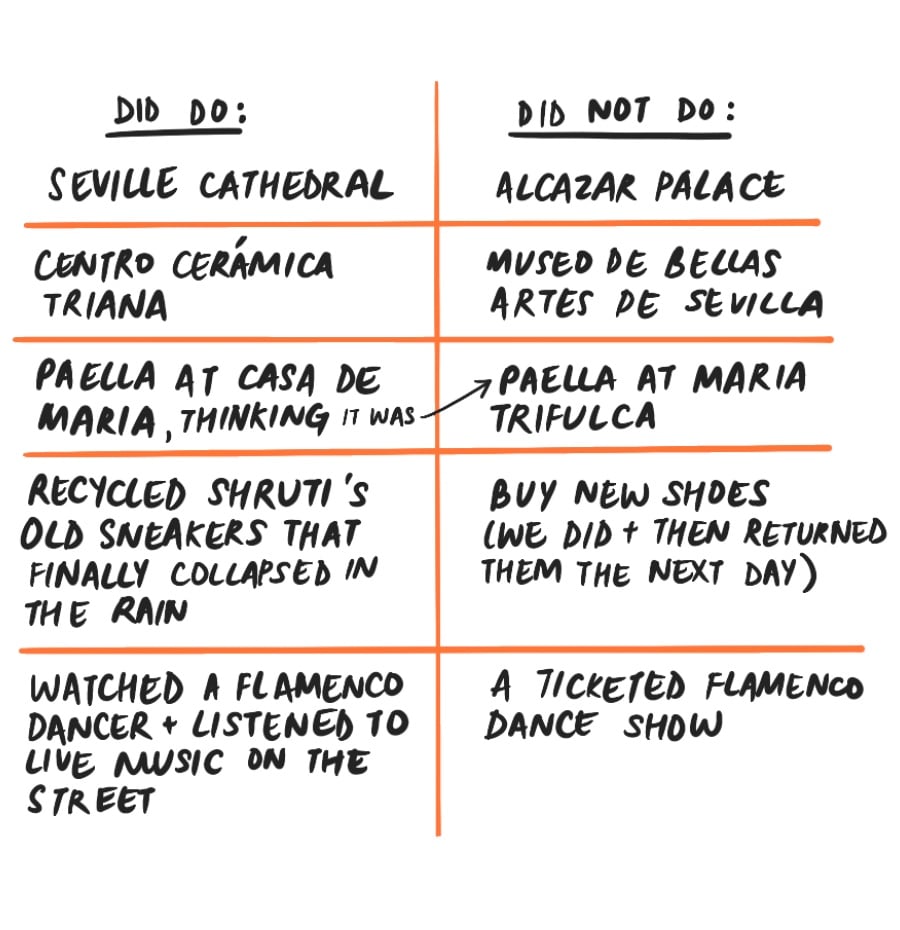 DID DO:
DID NOT DO:
SEVILLE CATHEDRAL
ALCAZAR PALACE
CENTRO CERÁMICA
TRIANA
MUSEO DE BELLAS
ARTES DE SEVILLA
PAELLA AT CASA DE
MARIA, THINKING IT WAS
PAELLA AT MARIA
TRIFULCA
RECYCLED SHRUTI'S
OLD SNEAKERS THAT
FINALLY COLLAPSED IN
THE RAIN
BUY NEW SHOES
(WE DID + THEN RETURNED
THEM THE NEXT DAY)
WATCHED A FLAMENCO
DANCER + LISTENED TO
LIVE MUSIC ON THE
STREET
A TICKETED FLAMENCO
DANCE SHOW